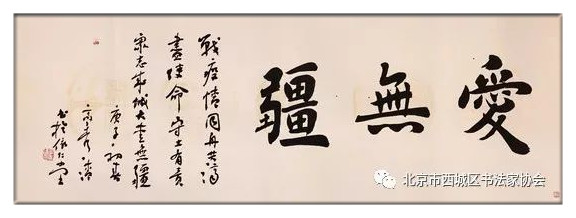 愛無疆
戰疫情同舟共濟
盡使命守土有責
衆志成城大愛無疆
庚子初春
北京市西城区书法家协会